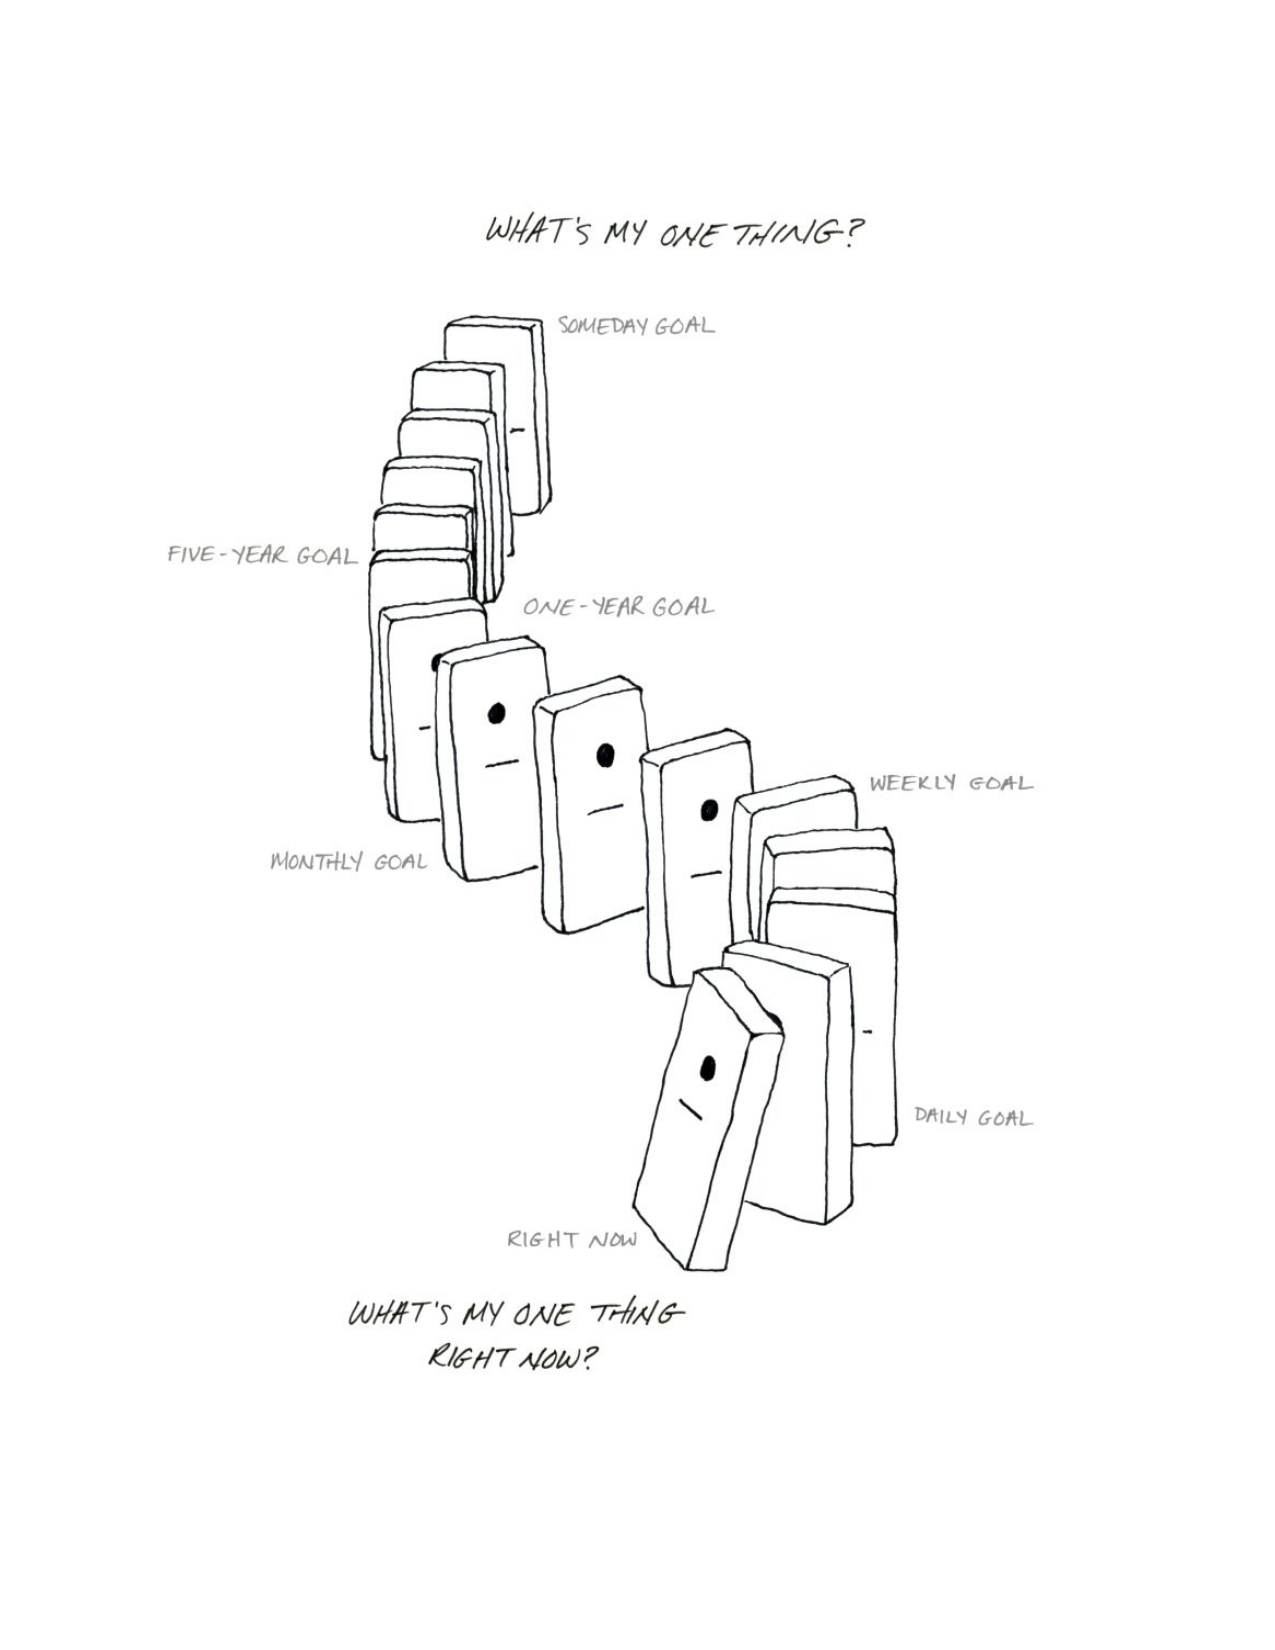 WHAT'S MY ONE THING?
SOMEDAY GOAL
FIVE-YEAR GOAL
ONE-YEAR GOAL
WEEKLY GOAL
MONTHLY GOAL
DAILY GOAL
RIGHT NOW
WHAT'S MY ONE THING
RIGHT NOW?